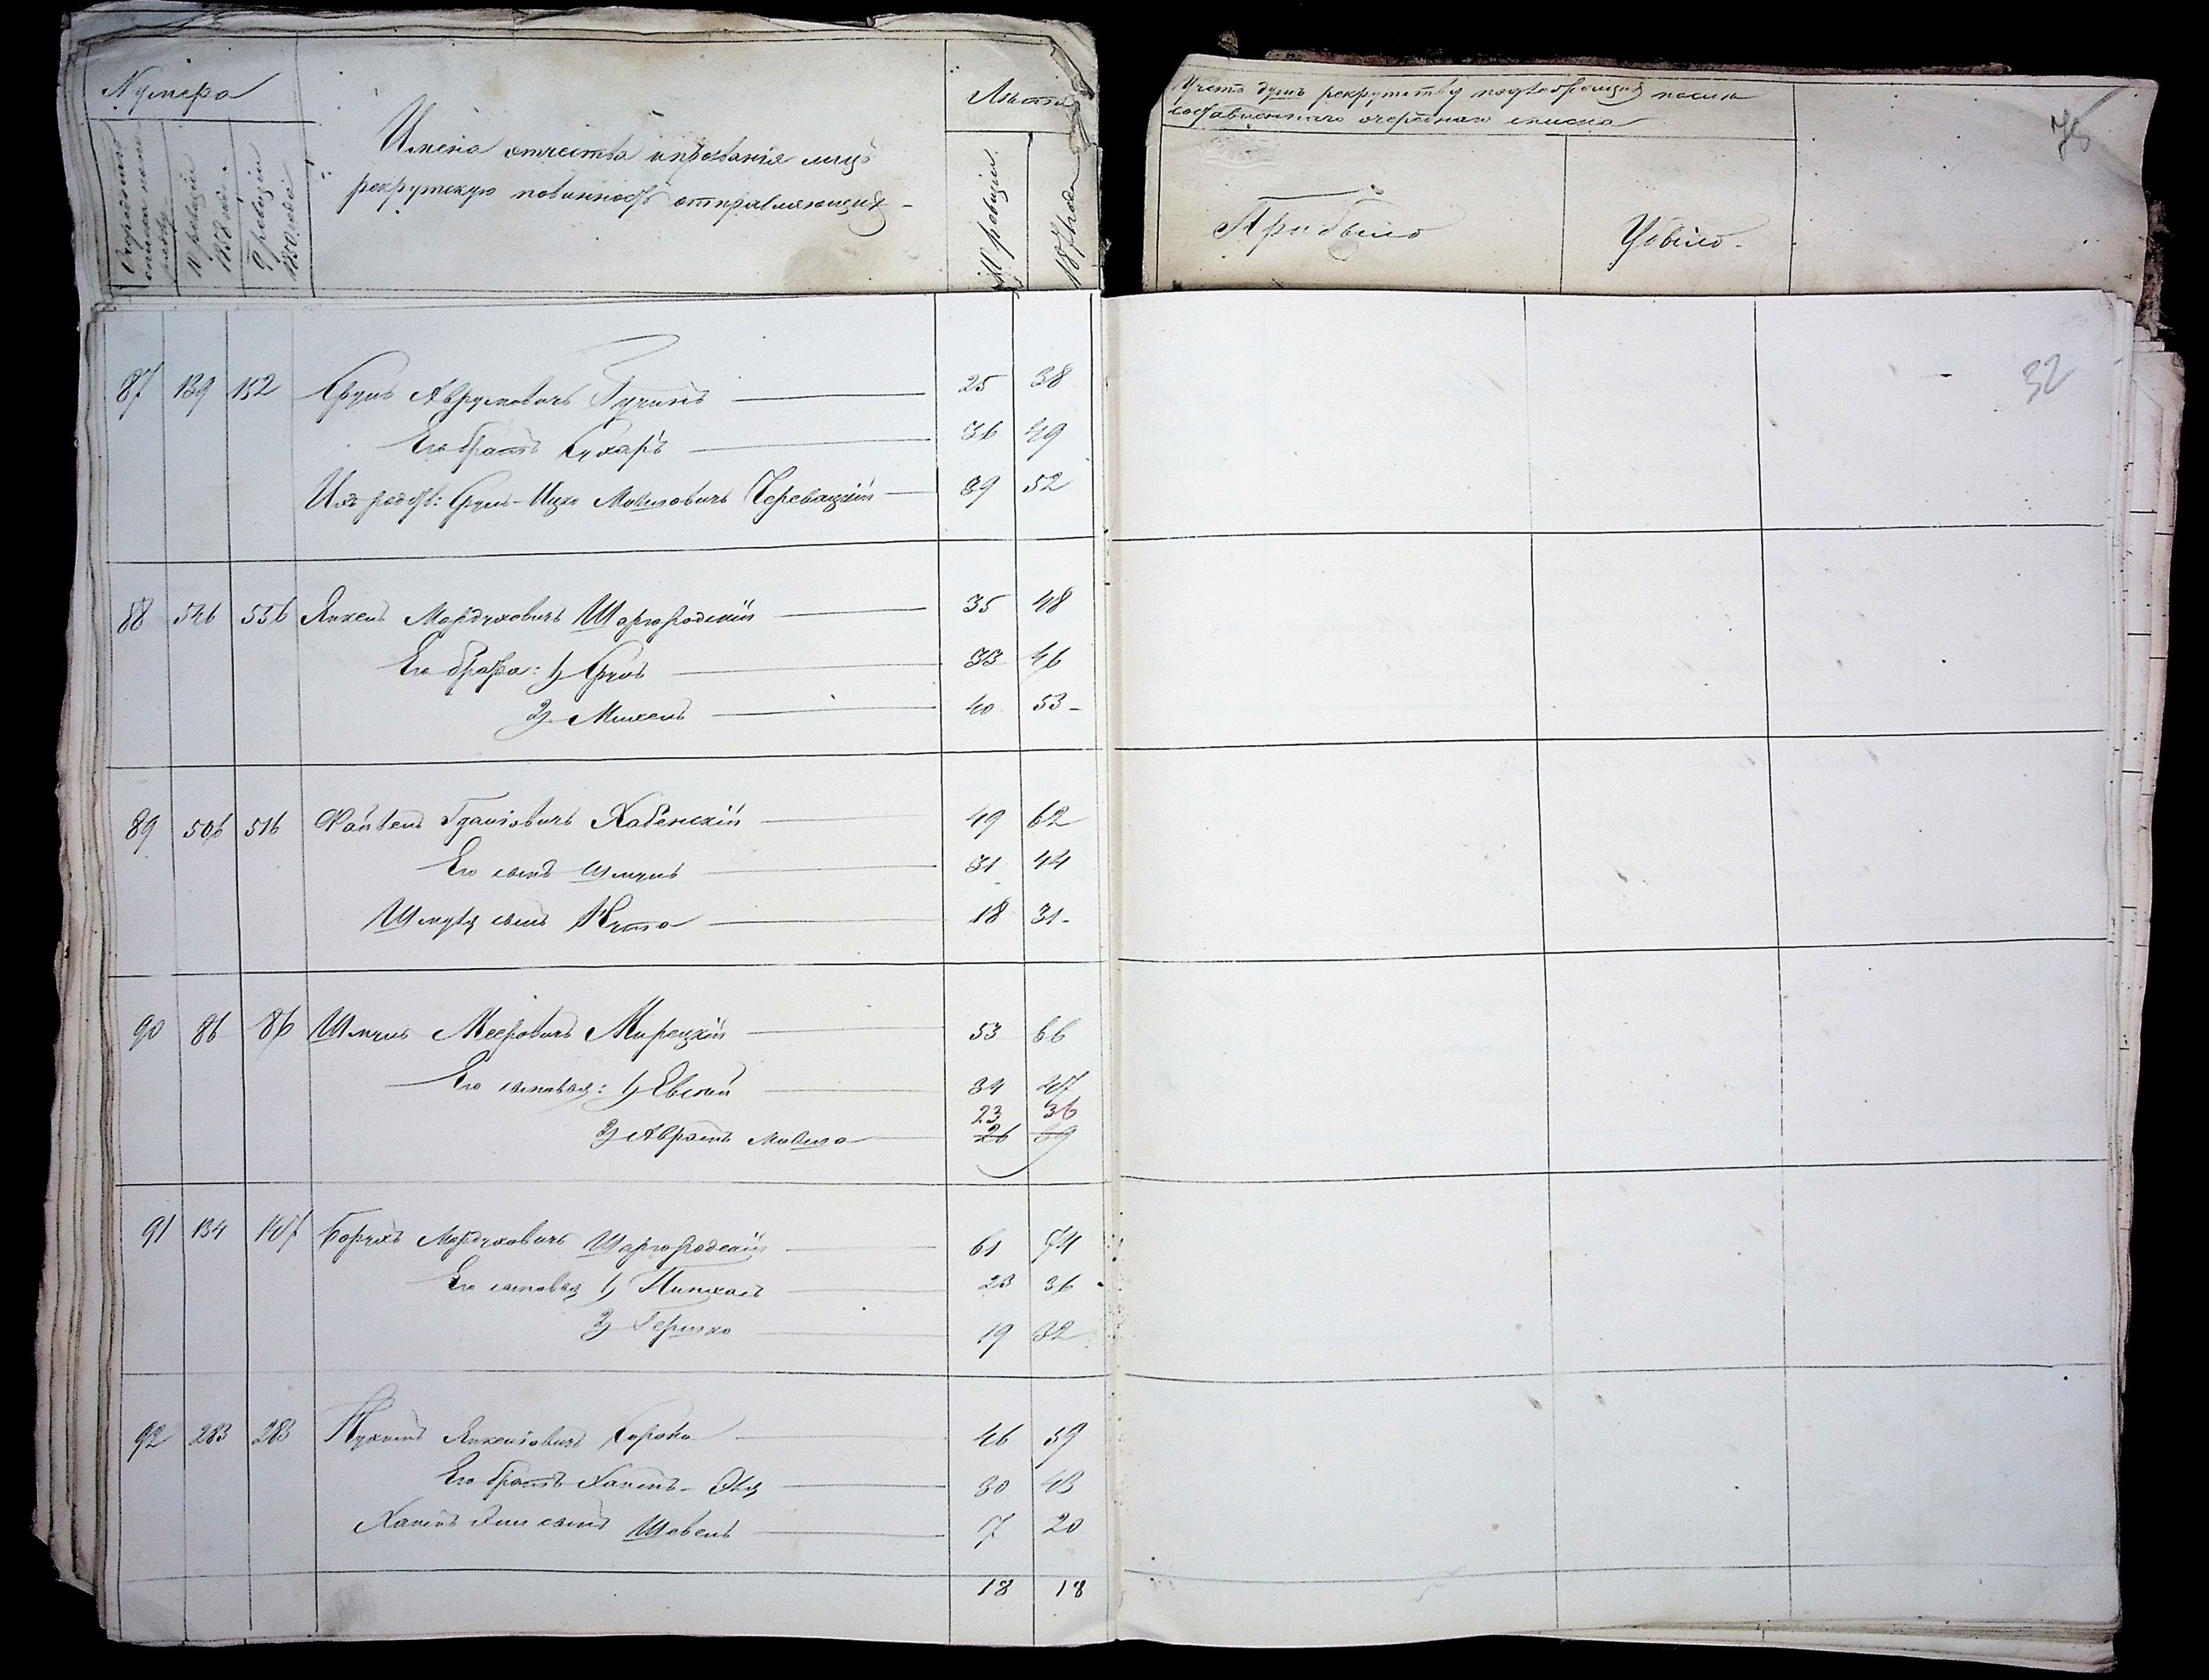 Нумера
Очередного списка по порядку
Ревизіи 1858 года
Ревизіи 1850 года
Имена отчества и прозванія лицъ
рекрутскую повинность отправляющихъ
Лѣта
По ревизіи
1871 года
Учетъ душъ рекрутству подлежащихъ послѣ
составленнаго очереднаго списка
Прибыло
Убыло
75
32
87 139 152 Срулъ Аврумовичъ 25 38
Его братъ Сухаръ 36 49
Ихъ родст: Сруль-Ицко Мошковичъ Черевацкій 39 52
88 546 556 Янкель Мордуховичъ Шаргородскій 35 48
Его братья: 1) Сруль 33 46
2) Михель 40 53
89 506 516 Файвель Хабенскій 49 62
Его сынъ Шмуль 31 44
Шмуля сынъ Нута 18 31
90 86 86 Шмуль Мееровичъ Мирецкій 53 66
Его сыновья: 1) Евсей 34 47
23 36
2) Аврамъ Мовша 26 39
91 134 147 Борухъ Мордуховичъ Шаргородскій 61 74
Его сыновья 1) Пинхасъ 23 36
2) Гершко 19 32
92 283 283 Нухимъ Янкелiовичъ 46 59
Его братъ Хаимъ- 30 43
Хаимъ сынъ Шевель 7 20
18 18